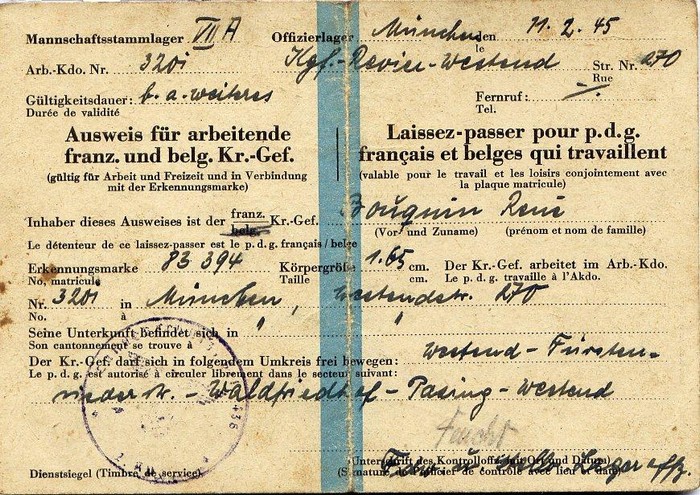 Mannschaftsstammlager VII A Offizierlager München den 11. 2. 45
le
Arb.-Kdo. Nr. 3201 Kgf.-Revier-Westend Str. Nr. 270
Rue
Gültigkeitsdauer: b. a. weiteres Fernruf: -/-
Durée de validité Tel.
Ausweis für arbeitende
franz. und belg. Kr.-Gef.
(gültig für Arbeit und Freizeit und in Verbindung
mit der Erkennungsmarke)
Laissez-passer pour p.d.g.
français et belges qui travaillent
(valable pour le travail et les loisirs conjointement avec
la plaque matricule)
Inhaber dieses Ausweises ist der franz. belg. Kr.-Gef. Bouquin René
(Vor- und Zuname) (prénom et nom de famille)
Le détenteur de ce laissez-passer est le p.d.g. français/belge
Erkennungsmarke 83 394 Körpergröße 1.65 cm. Der Kr.-Gef. arbeitet im Arb.-Kdo.
No, matricule Taille cm. Le p.d.g. travaille à l'Akdo.
Nr. 3201 in München, Westendstr. 270
No. à
Seine Unterkunft befindet sich in " "
Son cantonnement se trouve à
Der Kr.-Gef. darf sich in folgendem Umkreis frei bewegen: Westend-Fürsten-
Le p.d.g. est autorisé à circuler librement dans le secteur suivant:
riederstr. - Waldfriedhof - Pasing-Westend
Dienstsiegel (Timbre de service)
(Unterschrift des Kontrolloffz. mit Ort und Datum)
(Signature de l'officier de contrôle avec lieu et date)